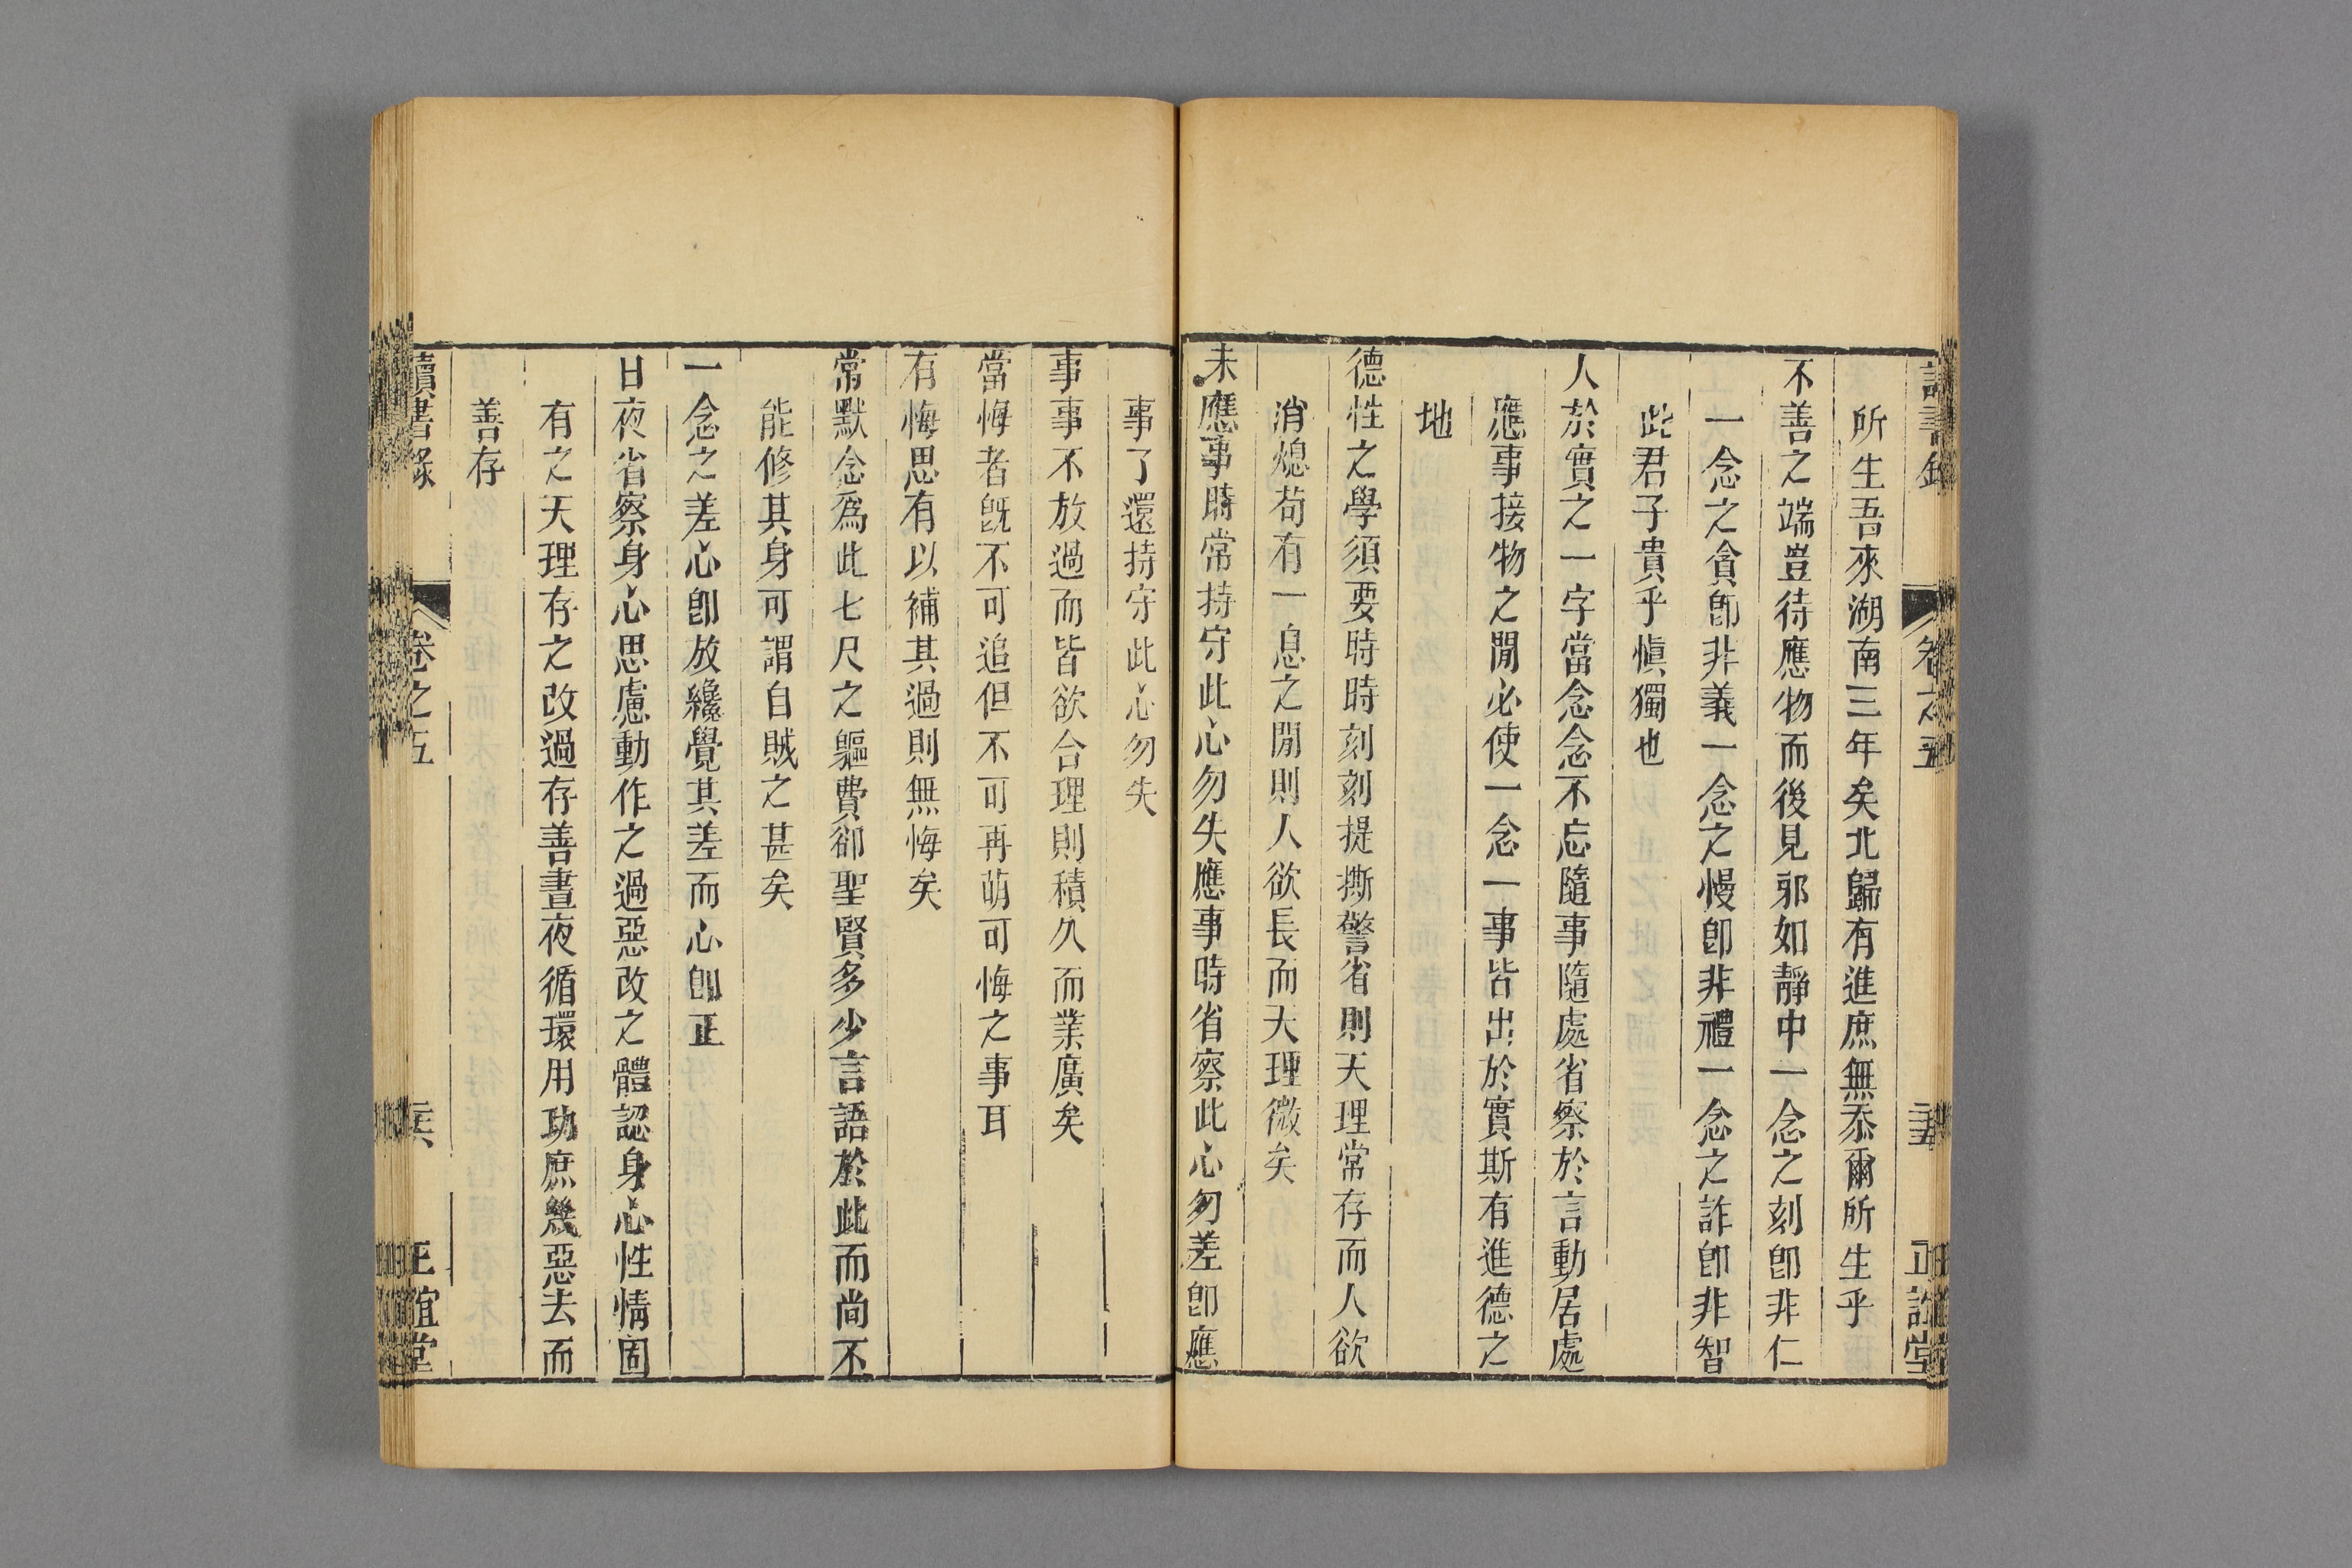 讀書錄 卷之五 正誼堂
所生吾來湖南三年矣北歸有進庶無忝爾所生乎
不善之端豈待應物而後見邪如靜中一念之刻卽非仁
一念之貪卽非義一念之慢卽非禮一念之詐卽非智
此君子貴乎愼獨也
人於實之一字當念念不忘隨事隨處省察於言動居處
應事接物之閒必使一念一事皆出於實斯有進德之
地
德性之學須要時時刻刻提撕警省則天理常存而人欲
消熄苟有一息之閒則人欲長而天理微矣
未應事時常持守此心勿失應事時省察此心勿差卽應
事了還持守此心勿失
事事不放過而皆欲合理則積久而業廣矣
當悔者旣不可追但不可再萌可悔之事耳
有悔思有以補其過則無悔矣
常默念爲此七尺之軀費卻聖賢多少言語於此而尚不
能修其身可謂自賊之甚矣
一念之差心卽放纔覺其差而心卽正
日夜省察身心思慮動作之過惡改之體認身心性情固
有之天理存之改過存善晝夜循環用功庶幾惡去而
善存
讀書錄 卷之五 正誼堂